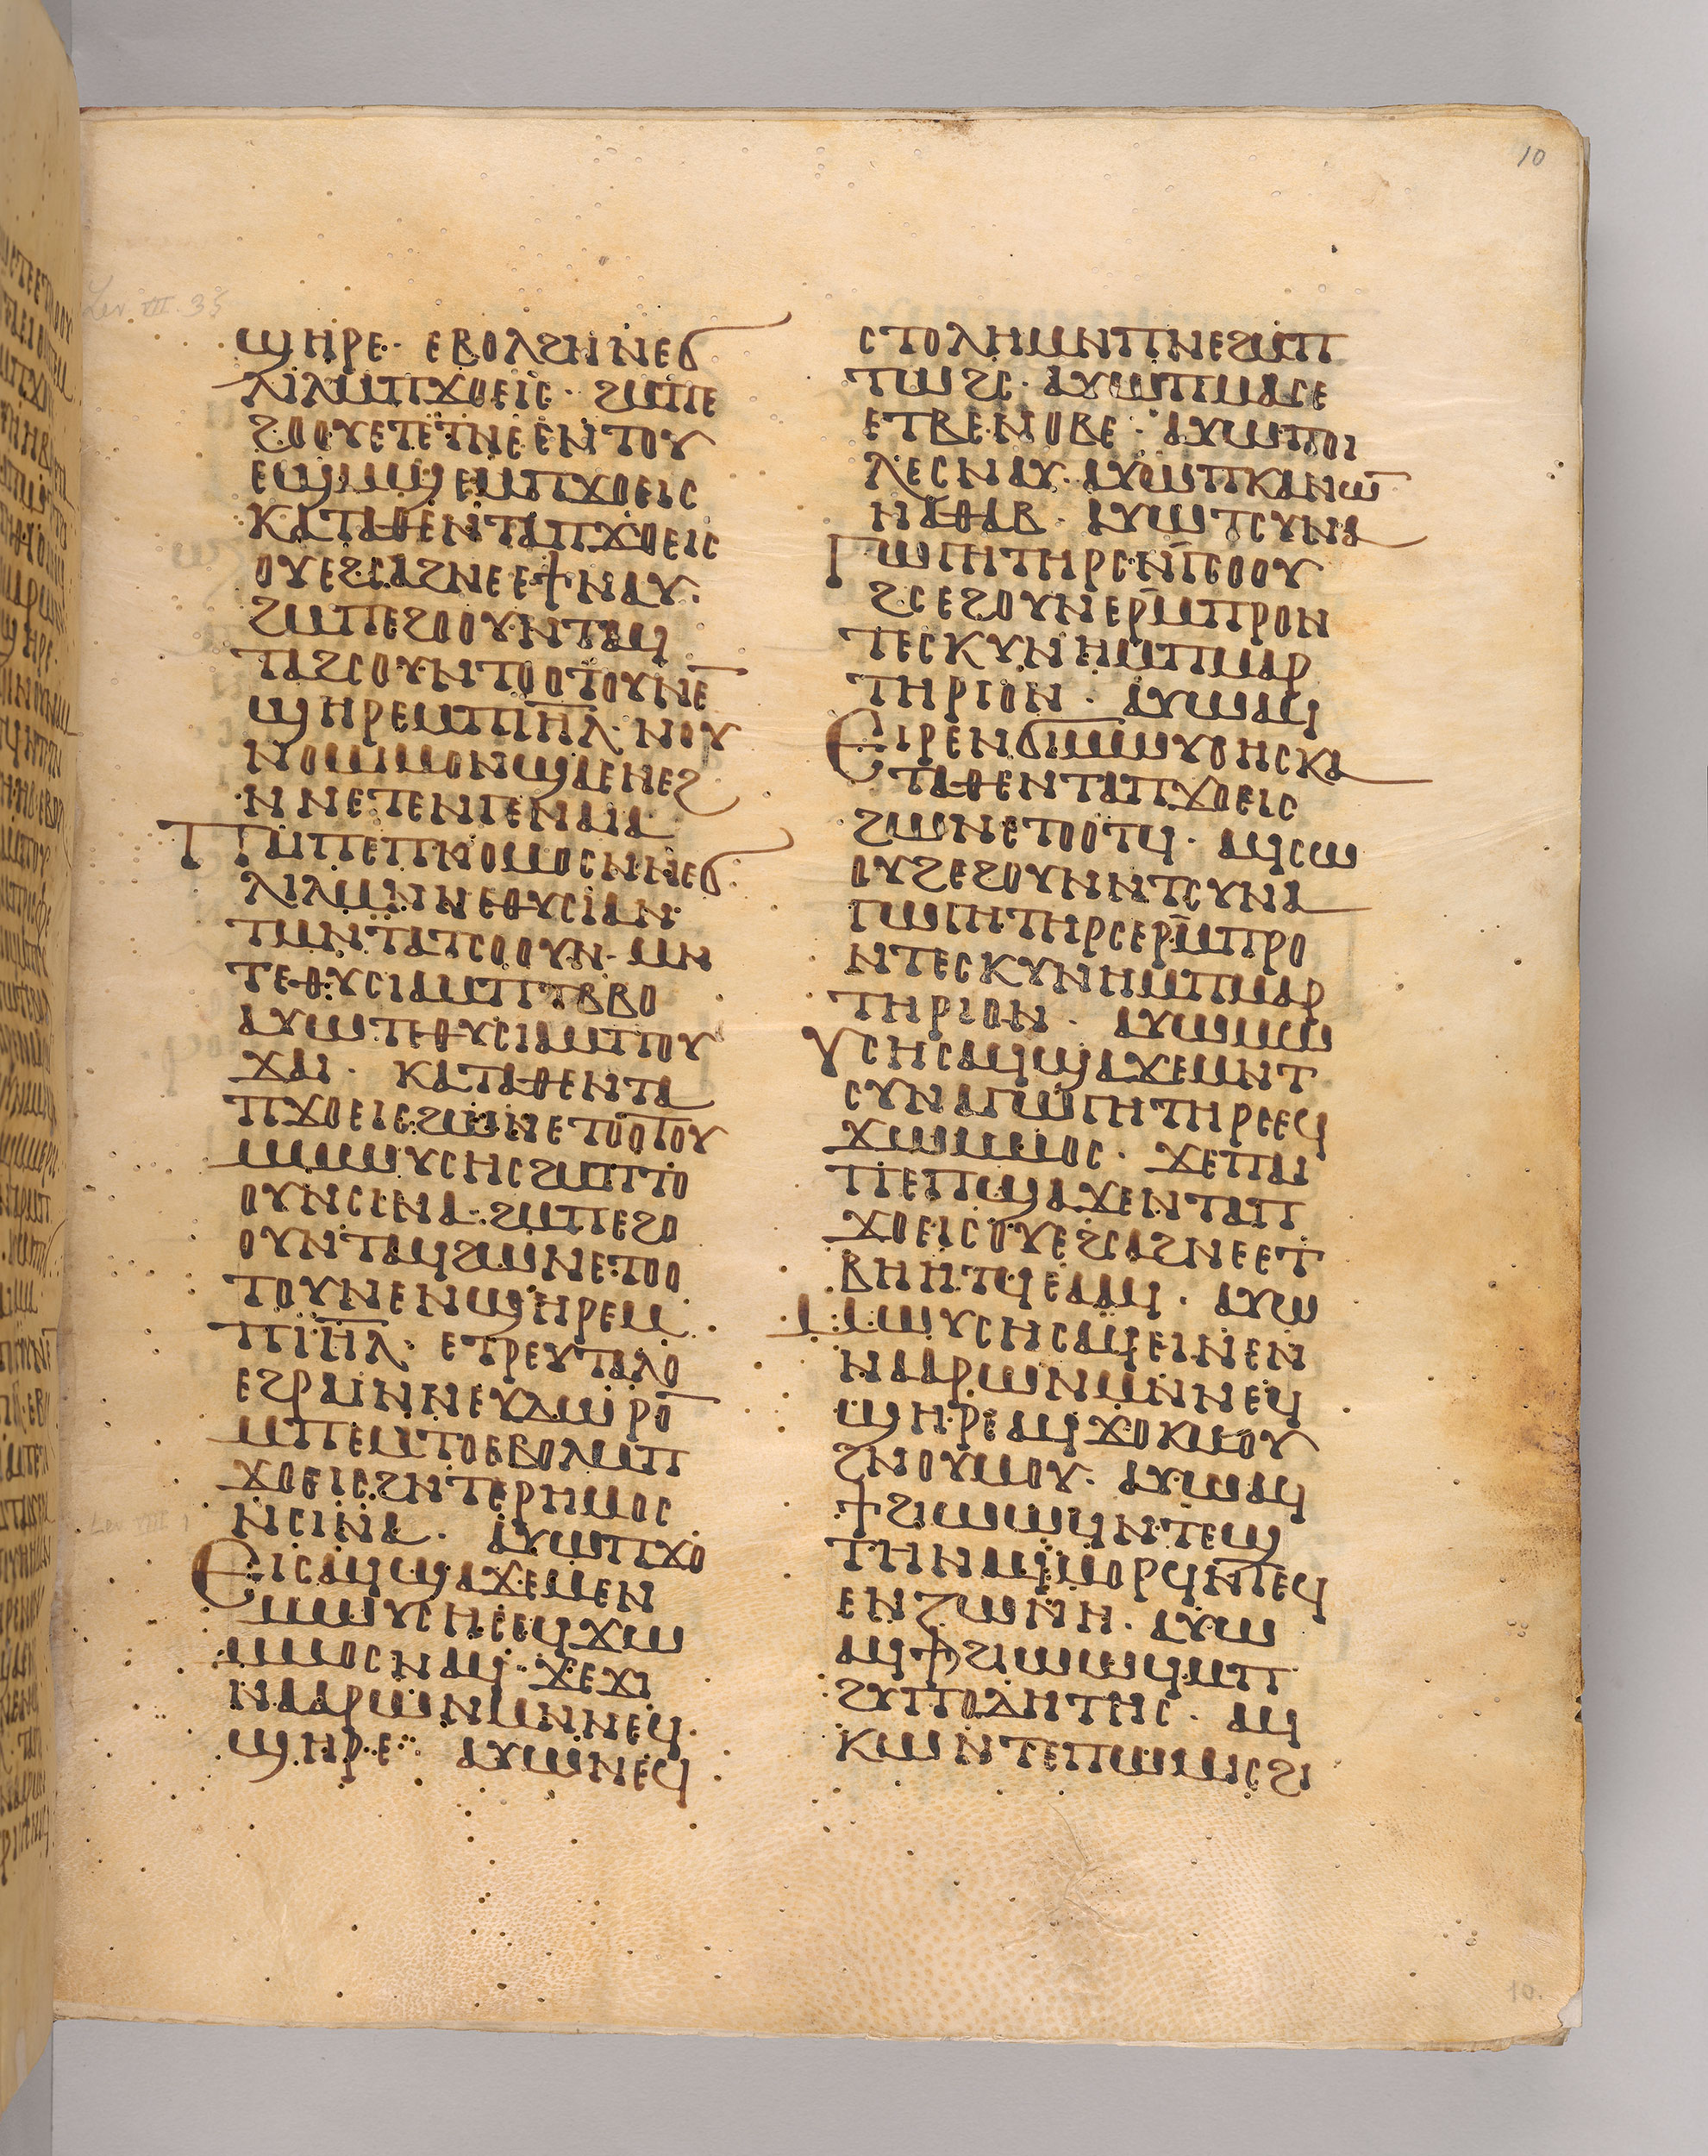 10
Lev. VII. 35
ϣⲏⲣⲉ· ⲉⲃⲟⲗϩⲛⲛⲉϭ
ⲗⲓⲗⲙⲡϫⲟⲉⲓⲥ· ϩⲙⲡⲉ
ϩⲟⲟⲩⲉⲧⲉϥⲛⲉⲉⲛⲧⲟⲩ
ⲉϣⲙϣⲉⲙⲡϫⲟⲉⲓⲥ
ⲕⲁⲧⲁⲑⲉⲛⲧⲁⲡϫⲟⲉⲓⲥ
ⲟⲩⲉϩⲥⲁϩⲛⲉⲉϯⲛⲁⲩ·
ϩⲙⲡⲉϩⲟⲟⲩⲛⲧⲁϥ
ⲧⲁϩⲥⲟⲩⲛⲧⲟⲟⲧⲟⲩⲛⲉ̅
ϣⲏⲣⲉⲙⲡⲓⲏ̅ⲗ· ⲛⲟⲩ
ⲛⲟⲙⲓⲙⲟⲛϣⲁⲉⲛⲉϩ
ⲛⲛⲉⲧⲉⲛⲅⲉⲛⲉⲁ
ⲡⲁⲓⲡⲉⲡⲛⲟⲙⲟⲥⲛⲛⲉϭ
ⲗⲓⲗⲙⲛⲛⲉⲑⲩⲥⲓⲁⲛ
ⲧⲙⲛⲧⲁⲧⲥⲟⲟⲩⲛ· ⲙⲛ
ⲧⲉⲑⲩⲥⲓⲁⲙⲡⲧⲃⲃⲟ
ⲁⲩⲱⲧⲉⲑⲩⲥⲓⲁⲙⲡⲟⲩ
ϫⲁⲓ· ⲕⲁⲧⲁⲑⲉⲛⲧⲁ
ⲡϫⲟⲉⲓⲥϩⲱⲛⲉⲧⲟⲟⲧⲟⲩ
ⲙⲙⲱⲩⲥⲏⲥϩⲙⲡⲧⲟ
ⲟⲩⲛⲥⲓⲛⲁ· ϩⲙⲡⲉϩⲟ
ⲟⲩⲛⲧⲁϥϩⲱⲛⲉⲧⲟⲟ
ⲧⲟⲩⲛⲉⲛϣⲏⲣⲉⲙ
ⲡⲓⲏ̅ⲗ· ⲉⲧⲣⲉⲩⲧⲁⲗⲟ
ⲉϩⲣⲁⲓⲛⲛⲉⲩⲇⲱⲣⲟ̅
ⲙⲡⲉⲙⲧⲟⲉⲃⲟⲗⲙⲡ
ϫⲟⲉⲓⲥϩⲛⲧⲉⲣⲏⲙⲟⲥ
ⲛⲥⲓⲛⲁ· ⲁⲩⲱⲡϫⲟ
Lev. VIII 1
ⲉⲓⲥⲁϥϣⲁϫⲉⲙⲉⲛ
ⲙⲱⲩⲥⲏⲥⲉϥϫⲱ
ⲙⲙⲟⲥⲛⲁϥ· ϫⲉϫⲓ
ⲛⲁⲁⲣⲱⲛⲙⲛⲛⲉϥ
ϣⲏⲣⲉ· ⲁⲩⲱⲛⲉϥ
ⲥⲧⲟⲗⲏⲙⲛⲡⲛⲉϩⲙⲡ
ⲧⲱϩⲥ· ⲁⲩⲱⲡⲙⲁⲥⲉ
ⲉⲧⲃⲉⲛⲟⲃⲉ· ⲁⲩⲱⲡⲟⲓ
ⲗⲉⲥⲛⲁⲩ· ⲁⲩⲱⲡⲕⲁⲛⲱ̅
ⲛⲁⲑⲁⲃ· ⲁⲩⲱⲧⲥⲩⲛⲁ
ⲅⲱⲅⲏⲧⲏⲣⲥⲛⲅⲥⲟⲟⲩ
ϩⲥⲉϩⲟⲩⲛⲉⲣⲙⲡⲣⲟⲛ
ⲧⲉⲥⲕⲩⲛⲏⲙⲡⲙⲁⲣ
ⲧⲏⲣⲓⲟⲛ· ⲁⲩⲱⲁϥ
ⲉⲓⲣⲉⲛϭⲓⲙⲱⲩⲥⲏⲥⲕⲁ
ⲧⲁⲑⲉⲛⲧⲁⲡϫⲟⲉⲓⲥ
ϩⲱⲛⲉⲧⲟⲟⲧϥ· ⲁϥⲥⲱ
ⲟⲩϩⲉϩⲟⲩⲛⲛⲧⲥⲩⲛⲁ
ⲅⲱⲅⲏⲧⲏⲣⲥⲉⲣⲙⲡⲣⲟ
ⲛⲧⲉⲥⲕⲩⲛⲏⲙⲡⲙⲁⲣ
ⲧⲏⲣⲓⲟⲛ· ⲁⲩⲱⲙⲱ
ⲩⲥⲏⲥⲁϥϣⲁϫⲉⲙⲛⲧ
ⲥⲩⲛⲁⲅⲱⲅⲏⲧⲏⲣⲥⲉϥ
ϫⲱⲙⲙⲟⲥ· ϫⲉⲡⲁⲓ
ⲡⲉⲡϣⲁϫⲉⲛⲧⲁⲡ
ϫⲟⲉⲓⲥⲟⲩⲉϩⲥⲁϩⲛⲉⲉⲧ
ⲃⲏⲏⲧϥⲉⲁⲁϥ· ⲁⲩⲱ
ⲙⲱⲩⲥⲏⲥⲁϥⲉⲓⲛⲉⲛ
ⲛⲁⲁⲣⲱⲛⲙⲛⲛⲉϥ
ϣⲏⲣⲉⲁϥϫⲟⲕⲙⲟⲩ
ϩⲛⲟⲩⲙⲟⲩ· ⲁⲩⲱⲁϥ
ϯϩⲓⲱⲱϥⲛⲧⲉϣ
ⲧⲏⲛⲁϥⲙⲟⲣϥⲛⲧⲉϥ
ⲉⲛⲍⲱⲛⲏ· ⲁⲩⲱ
ⲁϥϯϩⲓⲱⲱϥⲙⲡ
ϩⲩⲡⲟⲇⲏⲧⲏⲥ· ⲁϥ
ⲕⲱⲛⲧⲉⲡⲱⲙⲓⲥϩⲓ
10.